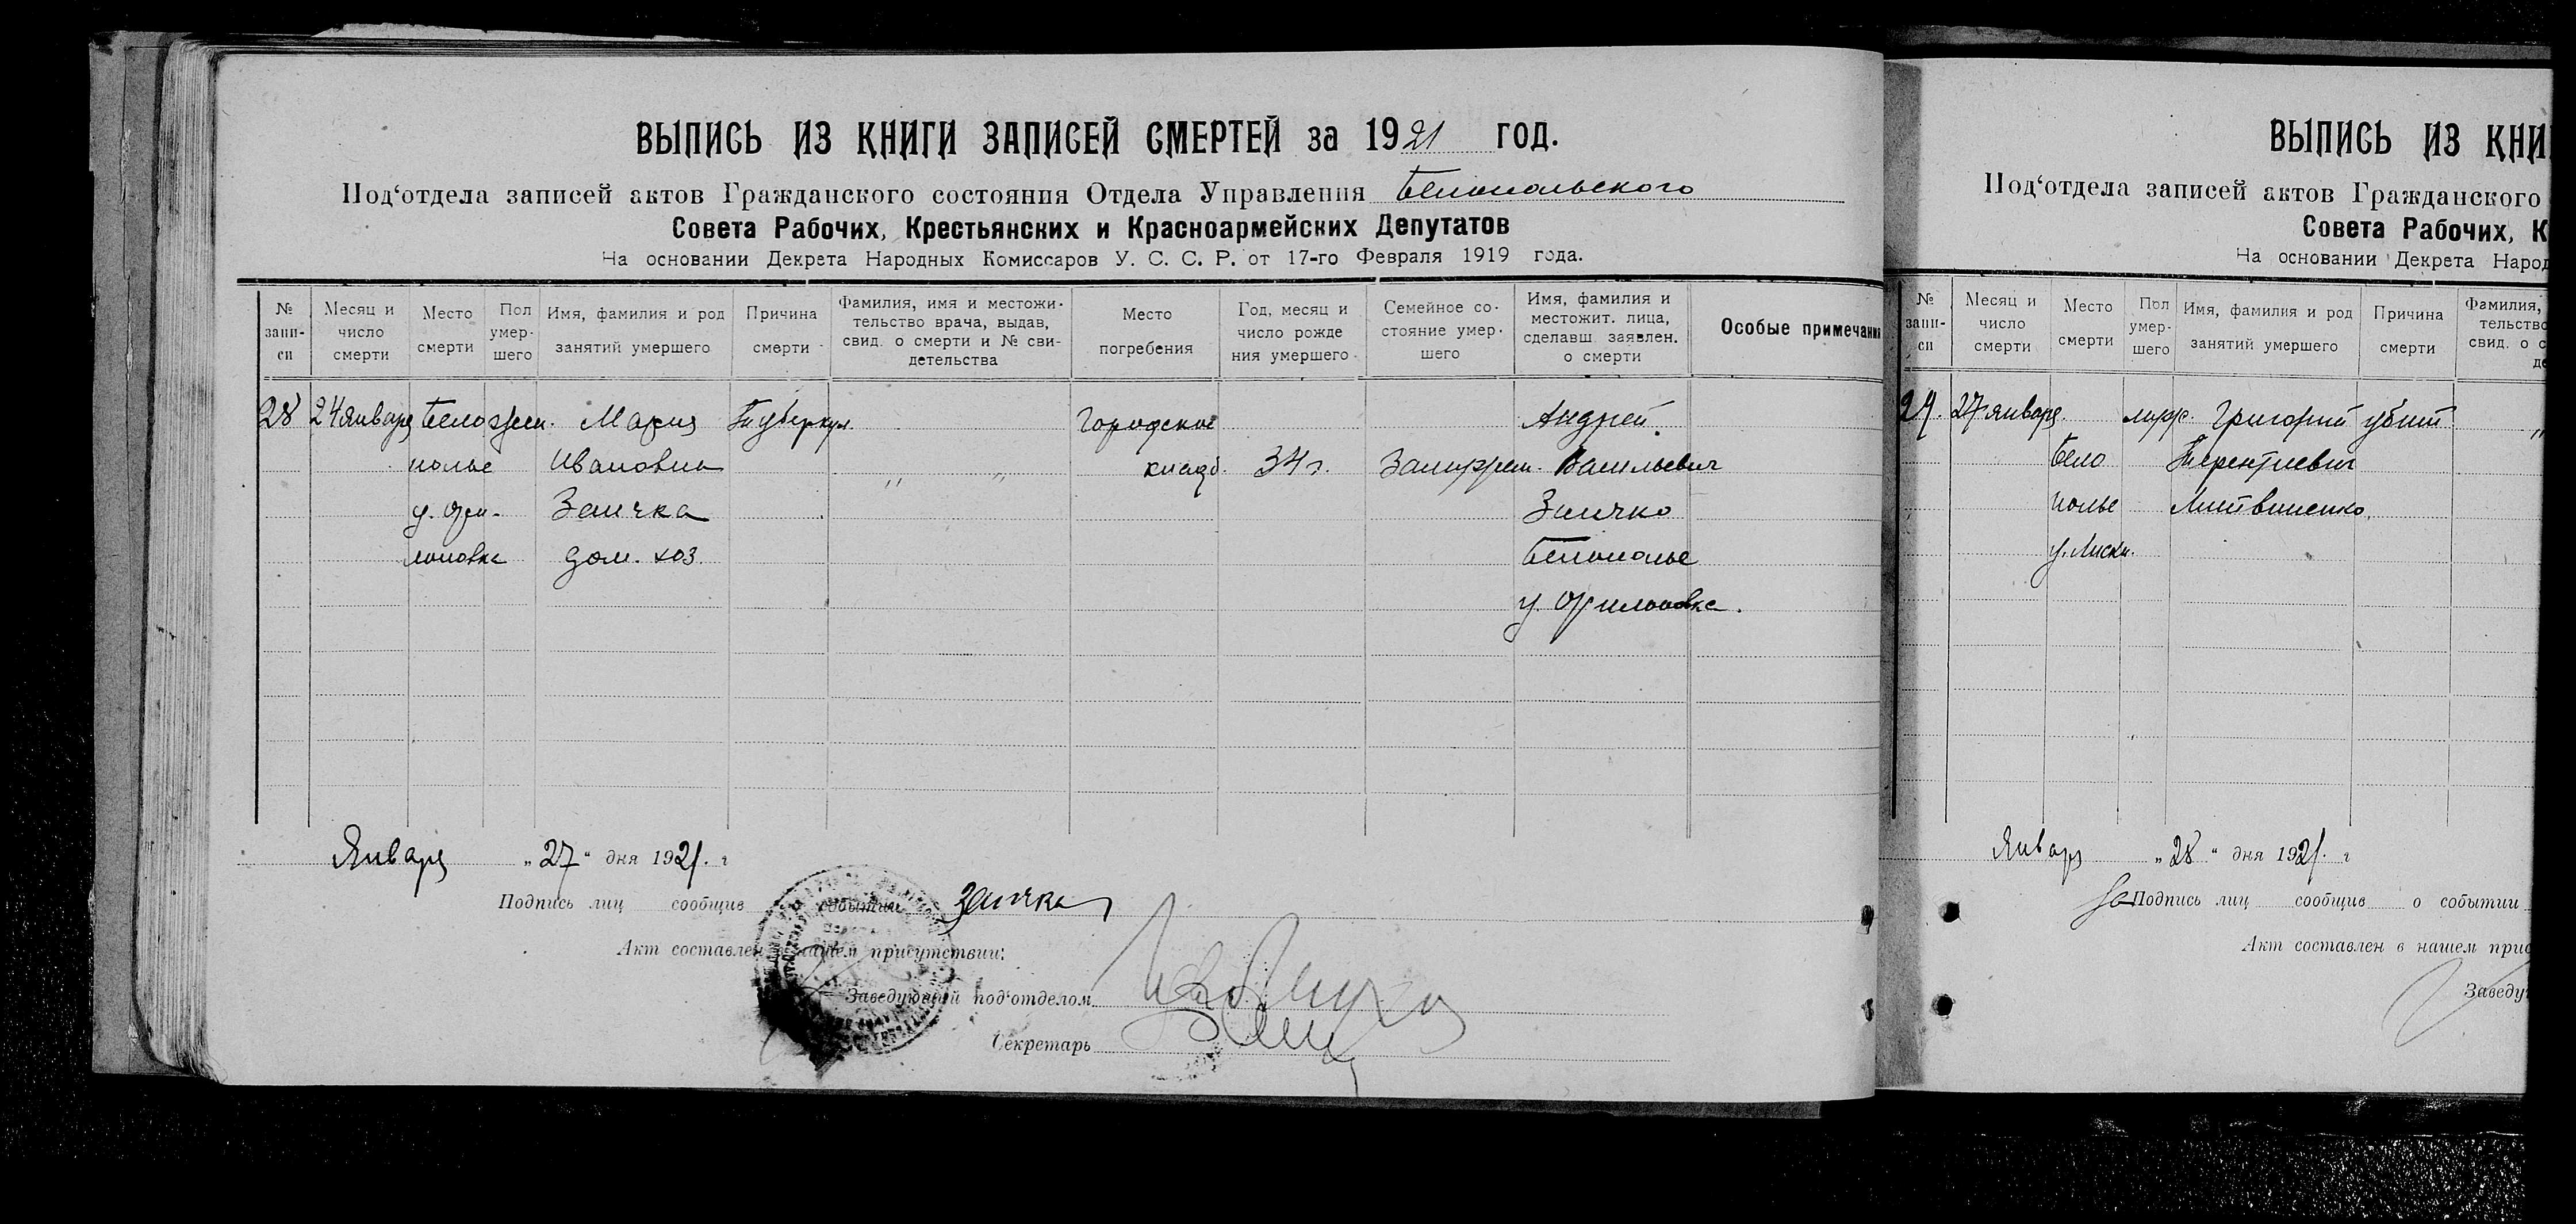 ВЫПИСЬ ИЗ КНИГИ ЗАПИСЕЙ СМЕРТЕЙ за 1921 год.
Под‘отдела записей актов Гражданского состояния Отдела Управления Белопольского
Совета Рабочих, Крестьянских и Красноармейских Депутатов
На основании Декрета Народных Комиссаров У. С. С. Р. от 17-го Февраля 1919 года.
№ запи-си
Месяц и число смерти
Место смерти
Пол умер-шего
Имя, фамилия и род занятий умершего
Причина смерти
Фамилия, имя и местожи-тельство врача, выдав, свид. о смерти и № сви-детельства
Место погребения
Год, месяц и число рожде ния умершего
Семейное со-стояние умер-шего
Имя, фамилия и местожит. лица, сделавш заявлен. о смерти
Особые примечани
28 24 января Бело жен. Мария Туберкул. Городское Андрей
полье Ивановна " " кладб. 34 г. Замужем Васильевич
Заичка Заичко
дом. хоз. Белополье
Января „27“ дня 1921. г
Подпись лиц сообщив событии Заичка
Акт составлен нашем присутствии:
Заведующий под‘отделом
Секретарь
ВЫПИСЬ ИЗ КНИ
Под‘отдела записей актов Гражданского
Совета Рабочих, К
На основании Декрета Народ
№ запи-си
Месяц и число смерти
Место смерти
Пол умер-шего
Имя, фамилия и род занятий умершего
Причина смерти
Фамилия, тельство свид. о с де
29. 27 января муж. Григорий убит "
Бело Терентиевич
полье Литвиненко
Января „28“ дня 1921. г
Подпись лиц сообщив о событии
Акт составлен в нашем прис
Заведу